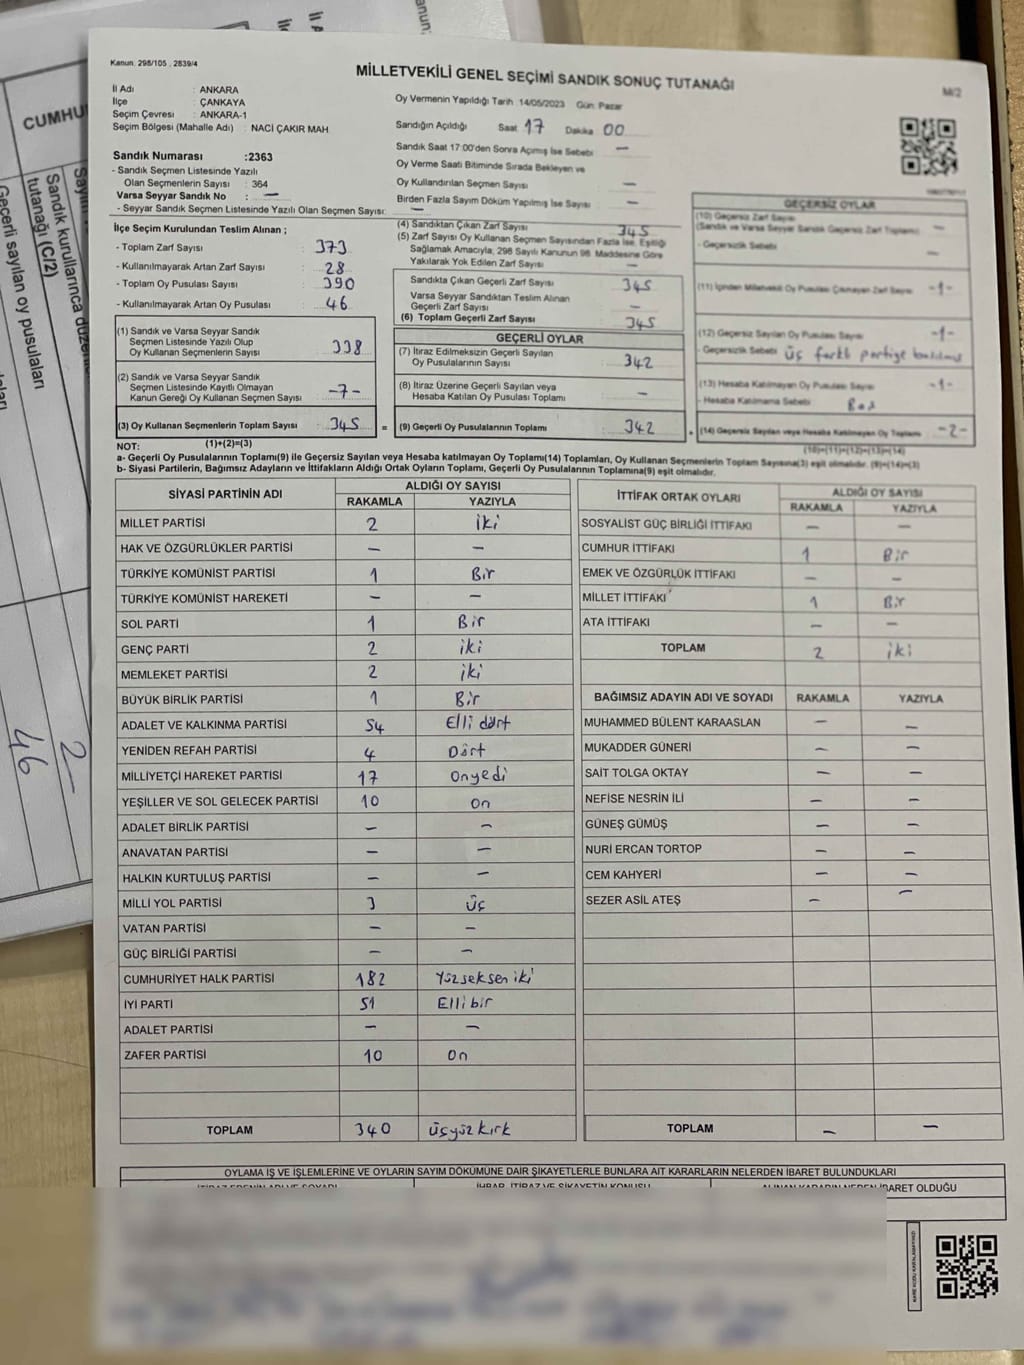 Kanun, 298/105 , 2839/4
MİLLETVEKİLİ GENEL SEÇİMİ SANDIK SONUÇ TUTANAĞI
M/2
İl Adı : ANKARA
İlçe : ÇANKAYA
Seçim Çevresi : ANKARA-1
Seçim Bölgesi (Mahalle Adı) : NACİ ÇAKIR MAH
Oy Vermenin Yapıldığı Tarih 14/05/2023 Gün: Pazar
Sandığın Açıldığı Saat 17 Dakika 00
Sandık Saat 17:00'den Sonra Açımış İse Sebebi : —
Oy Verme Saati Bitiminde Sırada Bekleyen ve
Oy Kullandırılan Seçmen Sayısı : —
Birden Fazla Sayım Döküm Yapılmış İse Sayısı : —
Sandık Numarası :2363
- Sandık Seçmen Listesinde Yazılı
Olan Seçmenlerin Sayısı : 364
Varsa Seyyar Sandık No : —
- Seyyar Sandık Seçmen Listesinde Yazılı Olan Seçmen Sayısı: —
İlçe Seçim Kurulundan Teslim Alınan ;
- Toplam Zarf Sayısı : 373
- Kullanılmayarak Artan Zarf Sayısı : 28
- Toplam Oy Pusulası Sayısı : 390
- Kullanılmayarak Artan Oy Pusulası : 46
(1) Sandık ve Varsa Seyyar Sandık
Seçmen Listesinde Yazılı Olup
Oy Kullanan Seçmenlerin Sayısı : 338
(2) Sandık ve Varsa Seyyar Sandık
Seçmen Listesinde Kayıtlı Olmayan
Kanun Gereği Oy Kullanan Seçmen Sayısı : -7-
(3) Oy Kullanan Seçmenlerin Toplam Sayısı : 345 =
(4) Sandıktan Çıkan Zarf Sayısı : 345
(5) Zarf Sayısı Oy Kullanan Seçmen Sayısından Fazla İse, Eşitliği
Sağlamak Amacıyla, 298 Sayılı Kanunun 98. Maddesine Göre
Yakılarak Yok Edilen Zarf Sayısı : —
Sandıkta Çıkan Geçerli Zarf Sayısı : 345
Varsa Seyyar Sandıktan Teslim Alınan
Geçerli Zarf Sayısı : —
(6) Toplam Geçerli Zarf Sayısı : 345
GEÇERLİ OYLAR
(7) İtiraz Edilmeksizin Geçerli Sayılan
Oy Pusulalarının Sayısı : 342
(8) İtiraz Üzerine Geçerli Sayılan veya
Hesaba Katılan Oy Pusulası Toplamı : —
(9) Geçerli Oy Pusulalarının Toplamı : 342
GEÇERSİZ OYLAR
(10) Geçersiz Zarf Sayısı
(Sandık ve Varsa Seyyar Sandık Geçersiz Zarf Toplamı) : —
- Geçersizlik Sebebi : —
(11) İçinden Milletvekili Oy Pusulası Çıkmayan Zarf Sayısı : -1-
(12) Geçersiz Sayılan Oy Pusulası Sayısı : -1-
- Geçersizlik Sebebi : üç farklı partiye basılmış
(13) Hesaba Katılmayan Oy Pusulası Sayısı : -1-
- Hesaba Katılmama Sebebi : Boş
(14) Geçersiz Sayılan veya Hesaba Katılmayan Oy Toplamı : -2-
NOT: (1)+(2)=(3)
(10)+(11)+(12)+(13)=(14)
a- Geçerli Oy Pusulalarının Toplamı(9) ile Geçersiz Sayılan veya Hesaba katılmayan Oy Toplamı(14) Toplamları, Oy Kullanan Seçmenlerin Toplam Sayısına(3) eşit olmalıdır. (9)+(14)=(3)
b- Siyasi Partilerin, Bağımsız Adayların ve İttifakların Aldığı Ortak Oyların Toplamı, Geçerli Oy Pusulalarının Toplamına(9) eşit olmalıdır.
SİYASİ PARTİNİN ADI
ALDIĞI OY SAYISI
RAKAMLA YAZIYLA
MİLLET PARTİSİ 2 iki
HAK VE ÖZGÜRLÜKLER PARTİSİ — —
TÜRKİYE KOMÜNİST PARTİSİ 1 Bir
TÜRKİYE KOMÜNİST HAREKETİ — —
SOL PARTİ 1 Bir
GENÇ PARTİ 2 iki
MEMLEKET PARTİSİ 2 iki
BÜYÜK BİRLİK PARTİSİ 1 Bir
ADALET VE KALKINMA PARTİSİ 54 Elli dört
YENİDEN REFAH PARTİSİ 4 Dört
MİLLİYETÇİ HAREKET PARTİSİ 17 Onyedi
YEŞİLLER VE SOL GELECEK PARTİSİ 10 On
ADALET BİRLİK PARTİSİ — —
ANAVATAN PARTİSİ — —
HALKIN KURTULUŞ PARTİSİ — —
MİLLİ YOL PARTİSİ 3 üç
VATAN PARTİSİ — —
GÜÇ BİRLİĞİ PARTİSİ — —
CUMHURİYET HALK PARTİSİ 182 Yüzseksen iki
İYİ PARTİ 51 Elli bir
ADALET PARTİSİ — —
ZAFER PARTİSİ 10 On
TOPLAM 340 üçyüz kırk
İTTİFAK ORTAK OYLARI
ALDIĞI OY SAYISI
RAKAMLA YAZIYLA
SOSYALİST GÜÇ BİRLİĞİ İTTİFAKI — —
CUMHUR İTTİFAKI 1 Bir
EMEK VE ÖZGÜRLÜK İTTİFAKI — —
MİLLET İTTİFAKI 1 Bir
ATA İTTİFAKI — —
TOPLAM 2 iki
BAĞIMSIZ ADAYIN ADI VE SOYADI RAKAMLA YAZIYLA
MUHAMMED BÜLENT KARAASLAN — —
MUKADDER GÜNERİ — —
SAİT TOLGA OKTAY — —
NEFİSE NESRİN İLİ — —
GÜNEŞ GÜMÜŞ — —
NURİ ERCAN TORTOP — —
CEM KAHYERİ — —
SEZER ASİL ATEŞ — —
TOPLAM — —
OYLAMA İŞ VE İŞLEMLERİNE VE OYLARIN SAYIM DÖKÜMÜNE DAİR ŞİKAYETLERLE BUNLARA AİT KARARLARIN NELERDEN İBARET BULUNDUKLARI
İTİRAZ EDENİN ADI VE SOYADI İHBAR, İTİRAZ VE ŞİKAYETİN KONUSU ALINAN KARARIN NEDEN İBARET OLDUĞU
KARE KODU KARALAMAYINIZ
CUMHU
Sandık kurullarınca düze
tutanağı (C/2)
Geçerli sayılan oy pusulaları
2
46